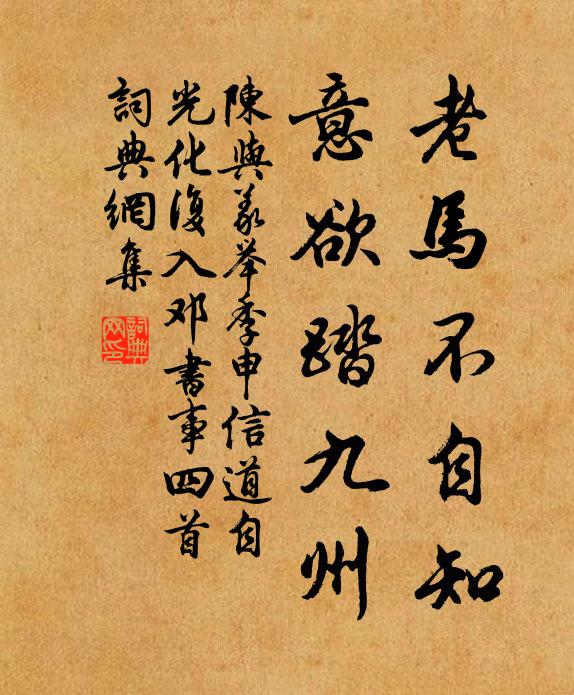 老馬不自知
意欲踏九州
陳與義举季申信道自
光化復入邓書事四首
詞典網集
詞典网印